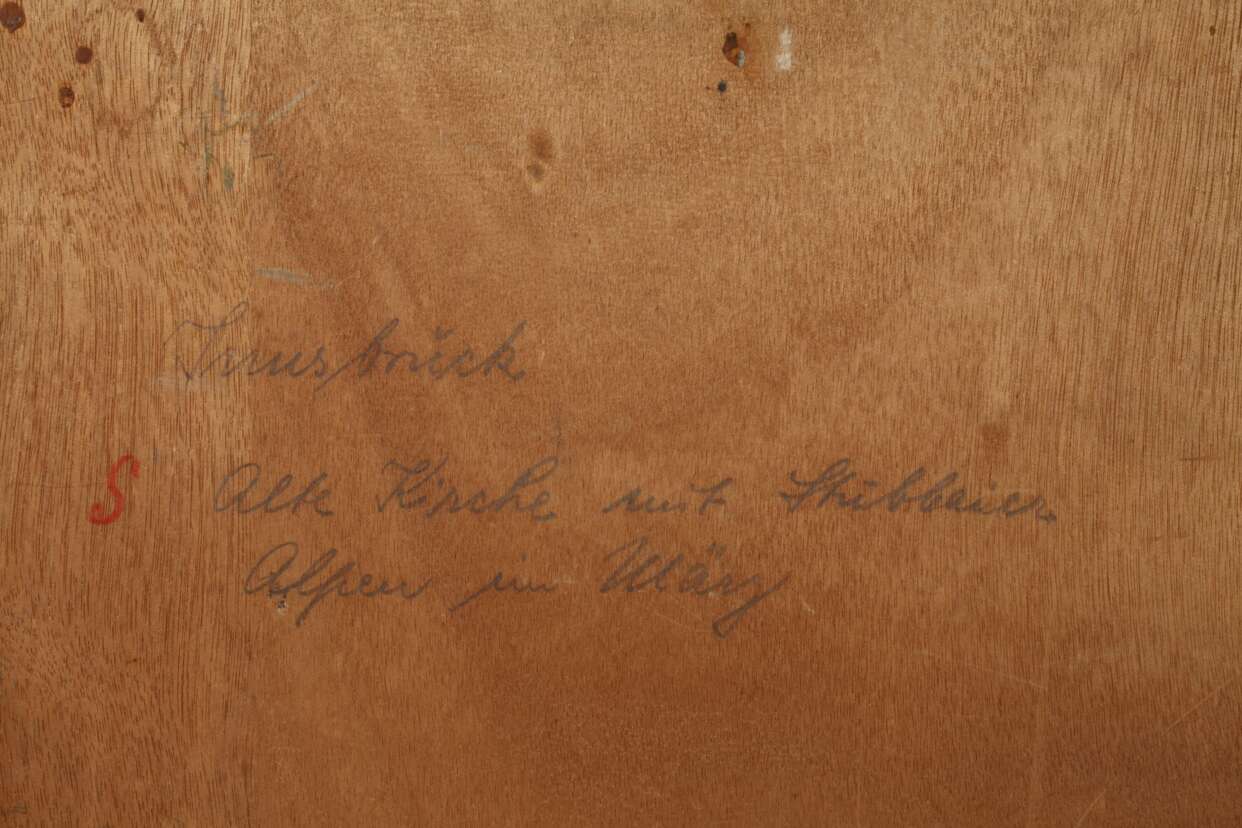 Innsbruck
S Alte Kirche mit Stubbaier
Alpen im März